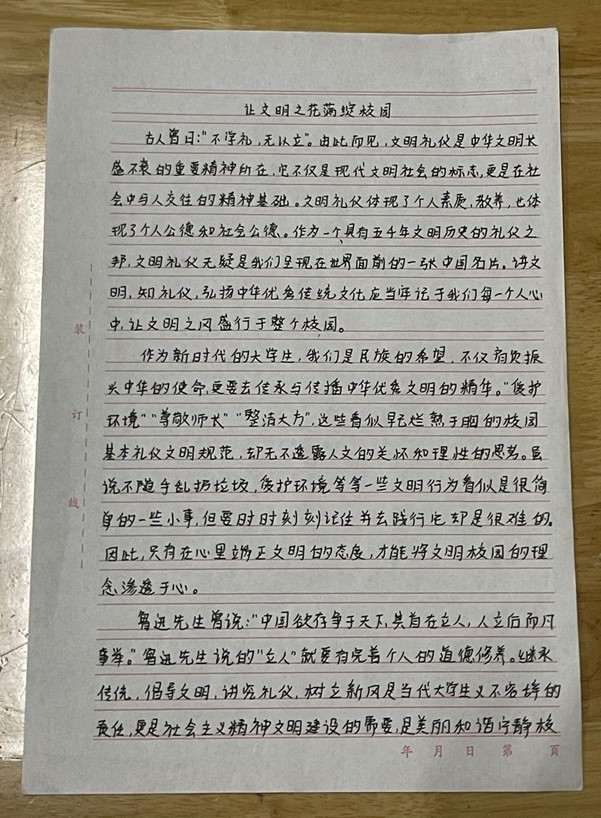 让文明之花满绽校园
古人曾曰:“不学礼，无以立”。由此而见，文明礼仪是中华文明长
盛不衰的重要精神所在，它不仅是现代文明社会的标志，更是在社
会中与人交往的精神基础。文明礼仪体现了个人素质，教养，也体
现了个人公德和社会公德。作为一个具有五千年文明历史的礼仪之
邦，文明礼仪无疑是我们呈现在世界面前的一张中国名片。讲文
明，知礼仪，弘扬中华优秀传统文化应当牢记于我们每一个人心
中，让文明之风盛行于整个校园。
作为新时代的大学生，我们是民族的希望，不仅肩负振
兴中华的使命，更要去传承与传播中华优秀文明的精华。“爱护
环境”“尊敬师长”“整洁大方”，这些看似早已烂熟于胸的校园
基本礼仪文明规范，却无不透露人文的关怀和理性的思考。虽
说不随手乱扔垃圾，爱护环境等等一些文明行为看似是很简
单的一些小事，但要时时刻刻记住并去践行它却是很难的。
因此，只有在心里端正文明的态度，才能将文明校园的理
念渗透于心。
鲁迅先生曾说:“中国欲存争于天下，其首在立人，人立后而凡
事举。”鲁迅先生说的“立人”就要有完善个人的道德修养。继承
传统，倡导文明，讲究礼仪，树立新风是当代大学生义不容辞的
责任，更是社会主义精神文明建设的需要，是美丽和谐宁静校
装
订
线
年 月 日 第 页